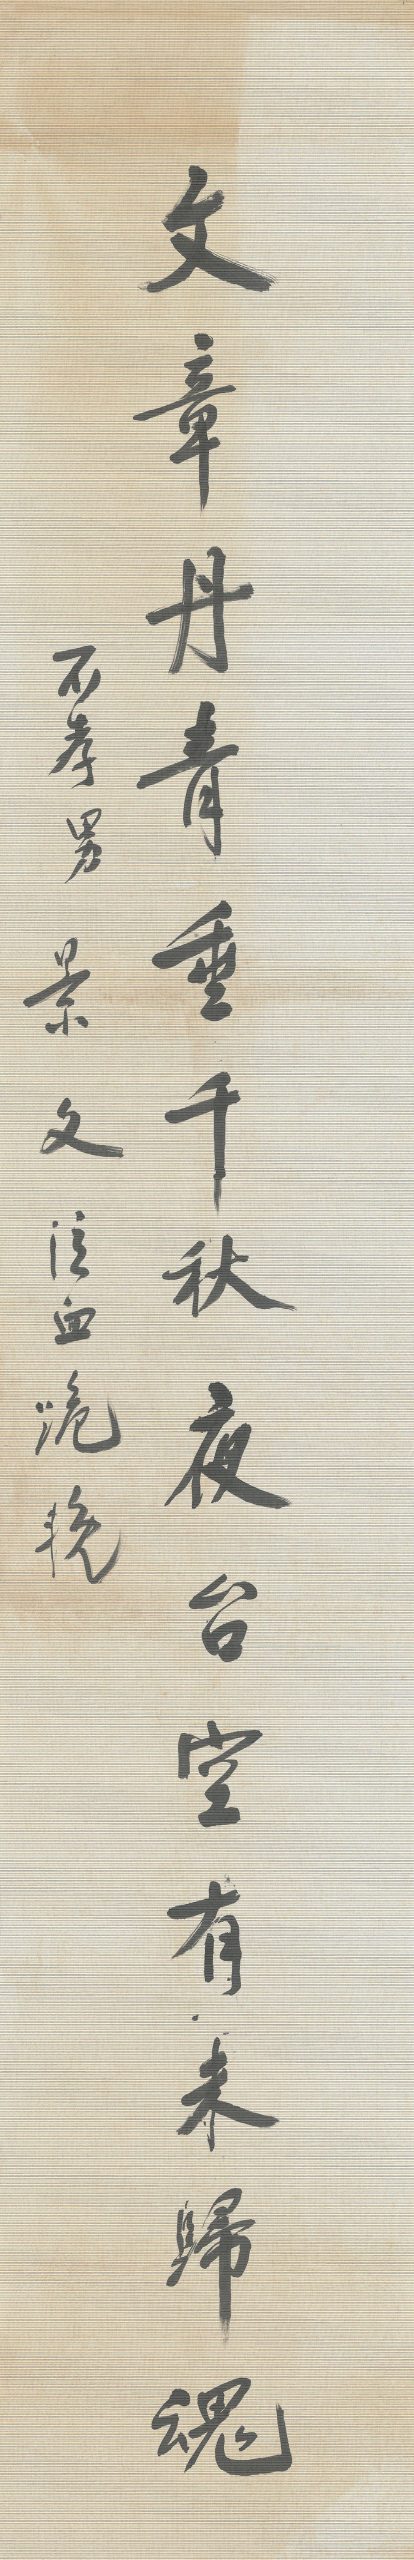 文章丹青垂千秋夜台空有未歸魂
不孝男景文泣血跪挽